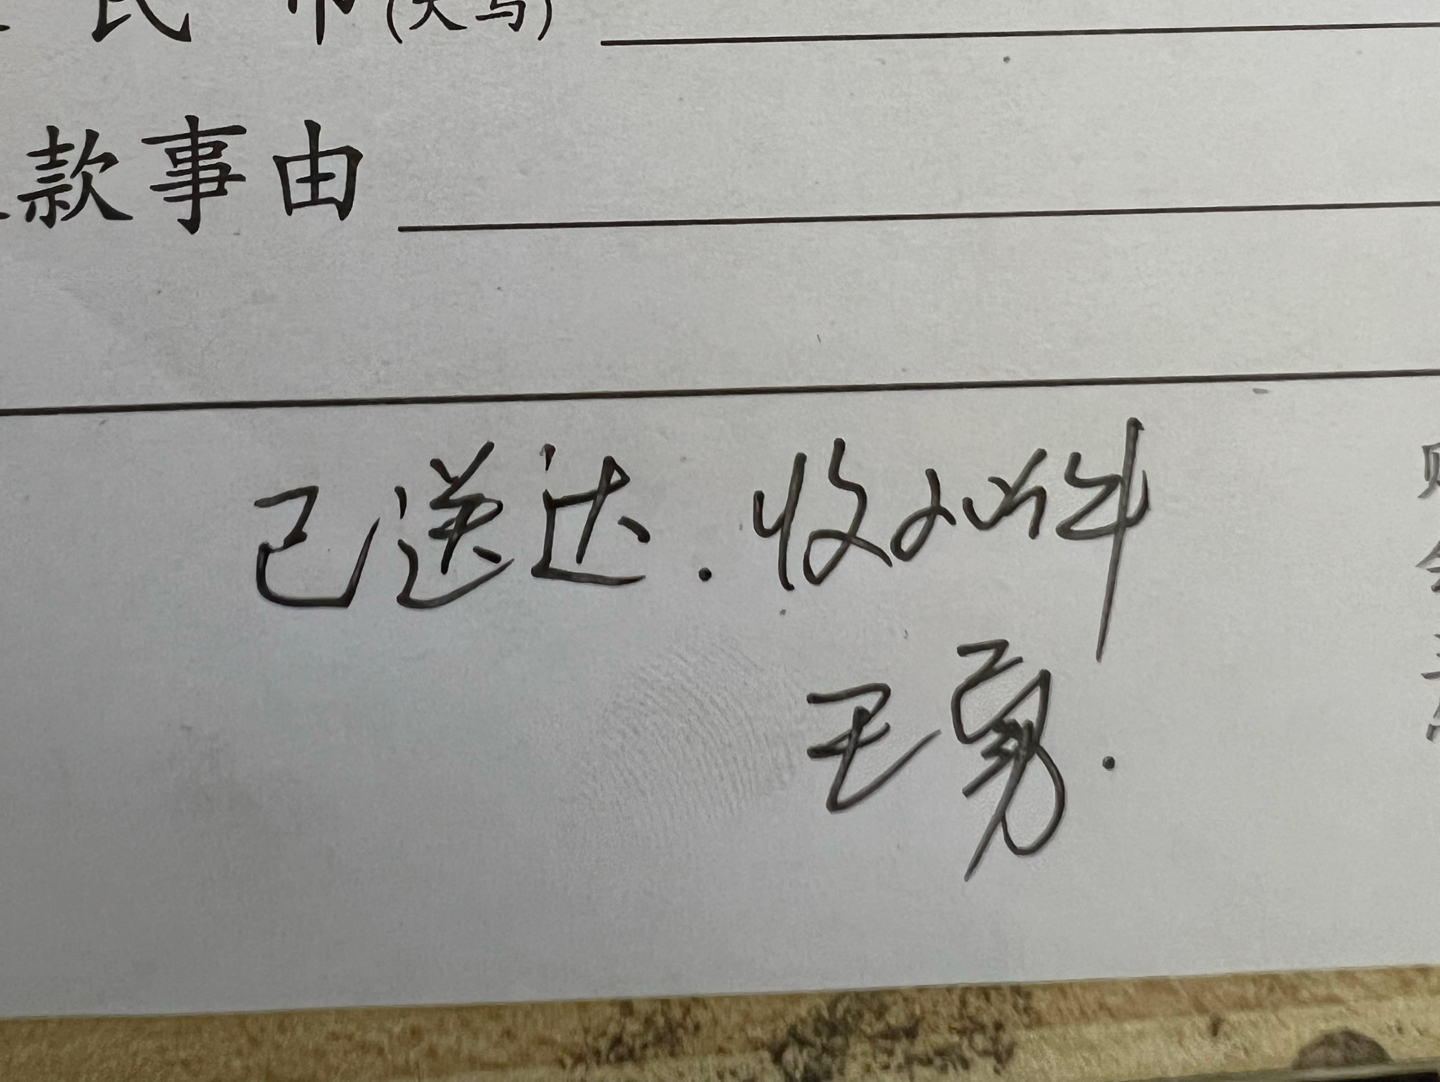 民 币(大写)
款事由
已送达.收件
王勇.